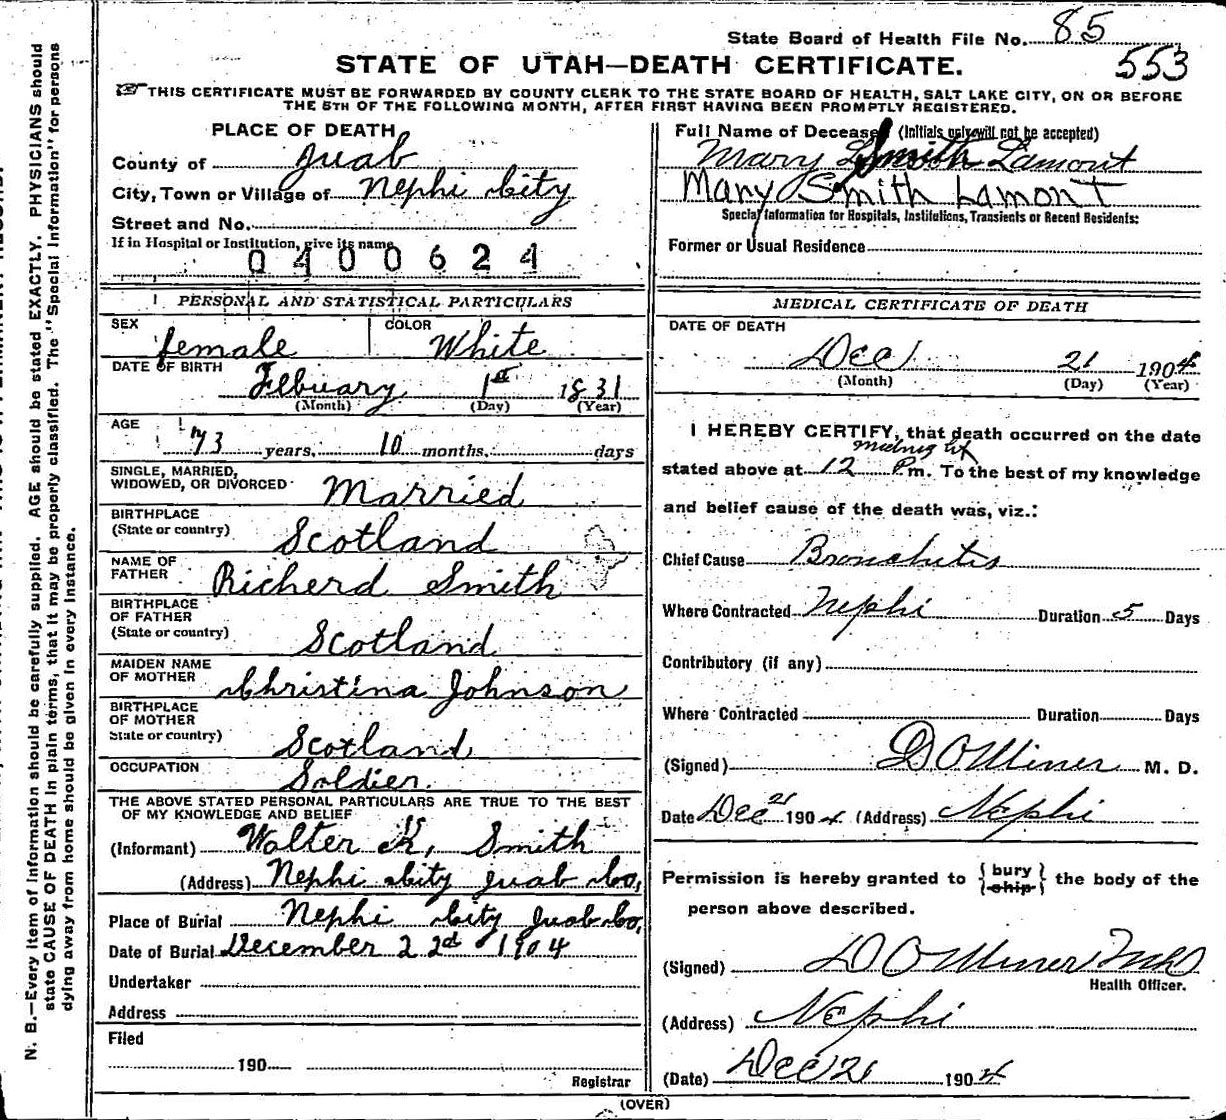 N. B.—Every item of information should be carefully supplied. AGE should be stated EXACTLY. PHYSICIANS should
state CAUSE OF DEATH in plain terms, that it may be properly classified. The "Special Information" for persons
dying away from home should be given in every instance.
State Board of Health File No. 85
553
STATE OF UTAH—DEATH CERTIFICATE.
THIS CERTIFICATE MUST BE FORWARDED BY COUNTY CLERK TO THE STATE BOARD OF HEALTH, SALT LAKE CITY, ON OR BEFORE
THE 5TH OF THE FOLLOWING MONTH, AFTER FIRST HAVING BEEN PROMPTLY REGISTERED.
PLACE OF DEATH
County of Juab
City, Town or Village of Nephi City
Street and No.
If in Hospital or Institution, give its name
0400624
PERSONAL AND STATISTICAL PARTICULARS
SEX female COLOR White
DATE OF BIRTH Febuary 1st 1831
(Month) (Day) (Year)
AGE 73 years, 10 months, days
SINGLE, MARRIED,
WIDOWED, OR DIVORCED Married
BIRTHPLACE
(State or country) Scotland
NAME OF
FATHER Richerd Smith
BIRTHPLACE
OF FATHER
(State or country) Scotland
MAIDEN NAME
OF MOTHER Christina Johnson
BIRTHPLACE
OF MOTHER
State or country) Scotland
OCCUPATION Soldier.
THE ABOVE STATED PERSONAL PARTICULARS ARE TRUE TO THE BEST
OF MY KNOWLEDGE AND BELIEF
(Informant) Walter K, Smith
(Address) Nephi City Juab Co,
Place of Burial Nephi City Juab Co,
Date of Burial December 22d 1904
Undertaker
Address
Filed
190
Registrar
Full Name of Deceased (Initials only will not be accepted)
Mary Smith Lamont
Mary Smith Lamont
Special Information for Hospitals, Institutions, Transients or Recent Residents:
Former or Usual Residence
MEDICAL CERTIFICATE OF DEATH
DATE OF DEATH
Dec 21 1904
(Month) (Day) (Year)
I HEREBY CERTIFY, that death occurred on the date
midnight
stated above at 12 P.m. To the best of my knowledge
and belief cause of the death was, viz.:
Chief Cause Bronchitis
Where Contracted Nephi Duration 5 Days
Contributory (if any)
Where Contracted Duration Days
(Signed) D O Miner M. D.
Date Dec 21 1904 (Address) Nephi
Permission is hereby granted to {bury
{ship} the body of the
person above described.
(Signed) D O Miner M D
Health Officer.
(Address) Nephi
(Date) Dec 21 1904
(OVER)